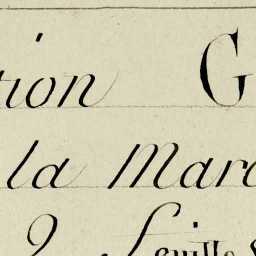 tion G
la Mar
2 Feuille